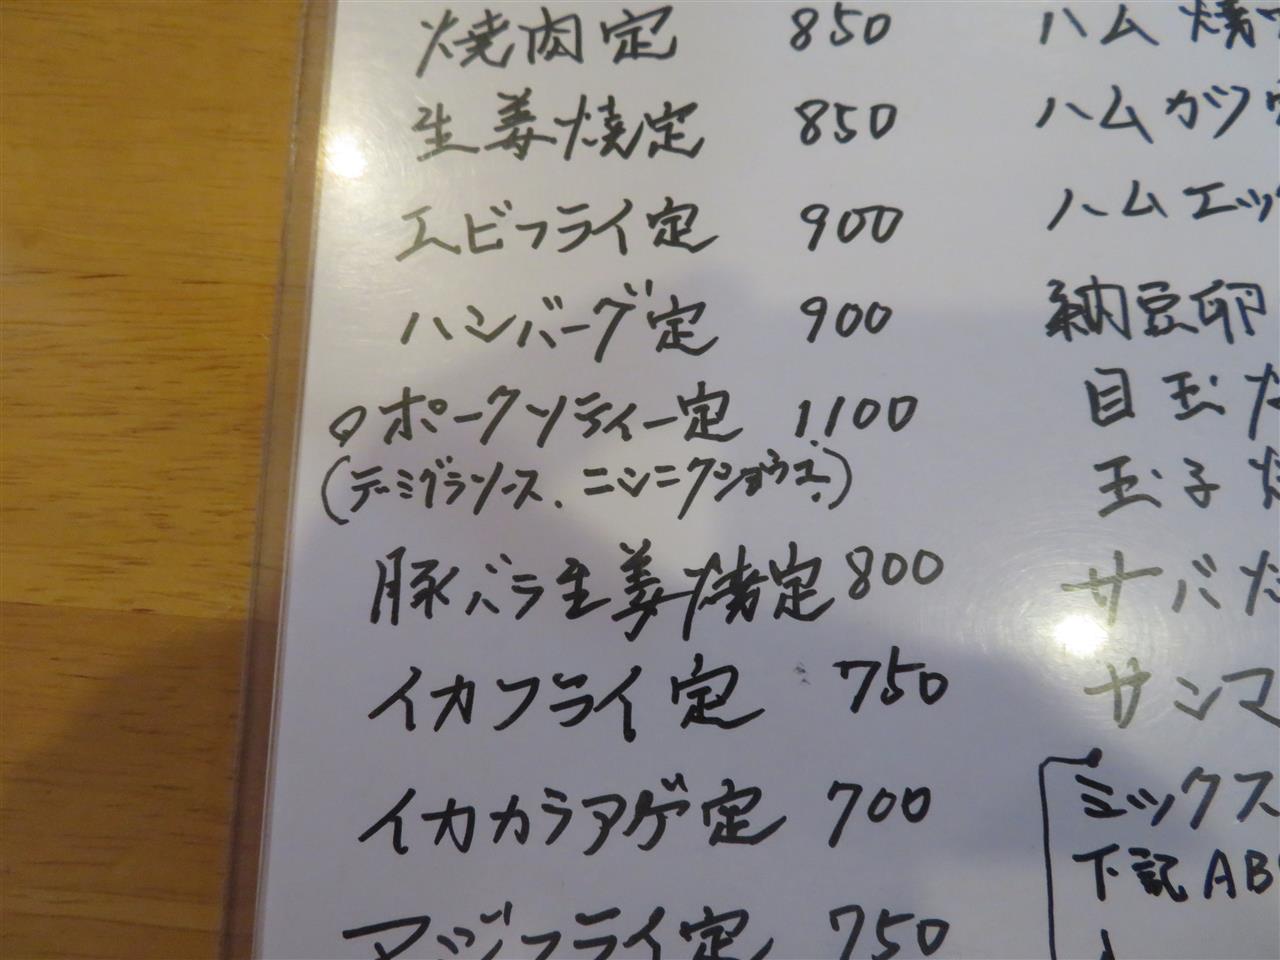 焼肉定 850
生姜焼定 850
エビフライ定 900
ハンバーグ定 900
ポークソティー定 1100
(デミグラソース、ニンニクショウユ)
豚バラ生姜焼定 800
イカフライ定 750
イカカラアゲ定 700
アジフライ定 750
ハム焼
ハムカツ定
ハムエッ
納豆卵
目玉
玉子焼
サバ焼
サンマ
ミックス
下記AB